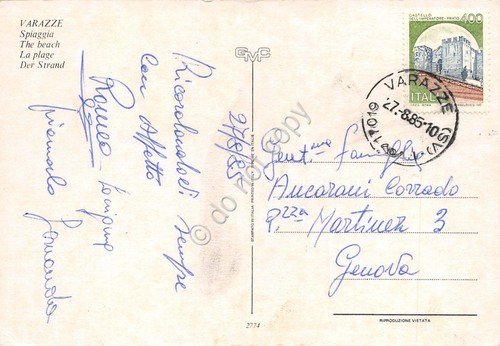 VARAZZE
Spiaggia
The beach
La plage
Der Strand
GMC
27/8/85
Ricordandovi sempre
con affetto
Romeo
Giancarlo
CASTELLO
DELL'IMPERATORE - PRATO
400
ITALIA
VARAZZE (SV)
27.8.85-10
17019
Gent.ma Famiglia
Ancarani Corrado
P.zza Martinez 3
Genova
2774
RIPRODUZIONE VIETATA
do not copy